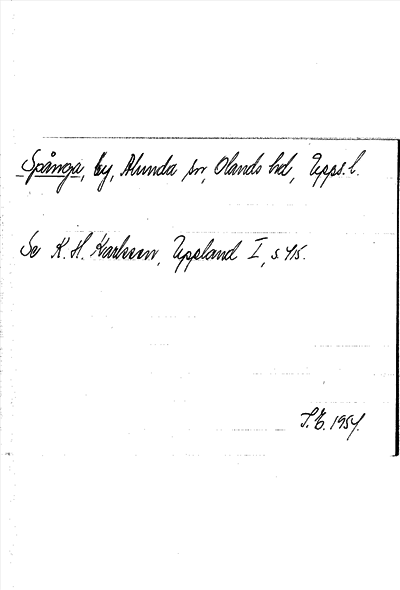 Spånga, by, Alunda sn, Olands hd, Upps. l.
Se K. H. Karlsson, Uppland I, s. 415.
1954.